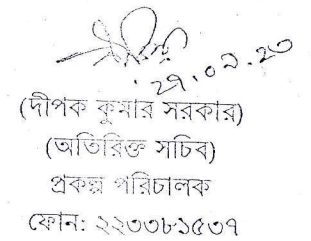 ২৭.০৯.২৩
(দীপক কুমার সরকার)
(অতিরিক্ত সচিব)
প্রকল্প পরিচালক
ফোন: ২২৩৩৮১৫৩৭